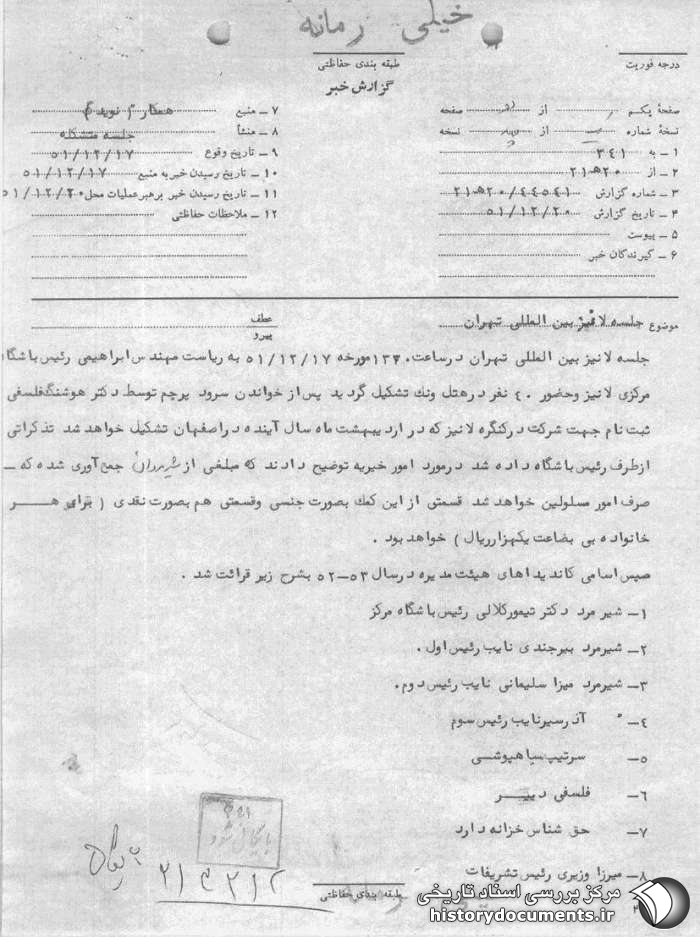 خیلی رمانه
طبقه بندی حفاظتی
درجه فوریت
گزارش خبر
صفحهٔ یکم از صفحه
نسخهٔ شماره از نسخه
۱ – به ۳۴۱
۲ – از ۲۰هـ۲۱
۳ – شماره گزارش ۲۰/۴۴۵۴۱هـ۲۱
۴ – تاریخ گزارش ۵۱/۱۲/۲۰
۵ – پیوست
۶ – گیرندگان خبر
۷ – منبع همکار (نوید)
۸ – منشأ جلسه متشکله
۹ – تاریخ وقوع ۵۱/۱۲/۱۷
۱۰ – تاریخ رسیدن خبر به منبع ۵۱/۱۲/۱۷
۱۱ – تاریخ رسیدن خبر برهبر عملیات محل ۵۱/۱۲/۲۰
۱۲ – ملاحظات حفاظتی
موضوع جلسه لاینز بین المللی تهران
عطف
پیرو
جلسه لانیز بین المللی تهران درساعت مورخه ۵۱/۱۲/۱۷ به ریاست مهندس ابراهیمی رئیس باشگاه
مرکزی لانیز وحضور ۴۰ نفر درهتل ونك تشکیل گردید پس از خواندن سرود پرچم توسط دکتر هوشنگ فلسفی
ثبت نام جهت شرکت درکنگره لانیز که در اردیبهشت ماه سال آینده دراصفهان تشکیل خواهد شد تذکراتی
ازطرف رئیس باشگاه داده شد درمورد امور خیریه توضیح دادند که مبلغی از شیرمردان جمع آوری شده که –
صرف امور مسلولین خواهد شد قسمتی از این کمك بصورت جنسی وقسمتی هم بصورت نقدی ( برای هر
خانواده بی بضاعت یکهزارریال ) خواهد بود .
صپس اسامی کاندیداهای هیئت مدیره درسال ۵۳–۵۲ بشرح زیر قرائت شد .
۱– شیر مرد دکتر تیمورکلالی رئیس باشگاه مرکز
۲– شیرمرد بیرجندی نایب رئیس اول .
۳– شیرمرد میزا سلیمانی نایب رئیس دوم .
۴– " آذرسیرنایب رئیس سوم
۵– سرتیپ سیاهپوشی
۶– فلسفی دبیر
۷– حق شناس خزانه دارد
۸– میرزا وزیری رئیس تشریفات
بایگانی شود
بایگانی
۲۱۳۲۱۲
طبقه بندی حفاظتی
مرکز بررسی اسناد تاریخی
historydocuments.ir